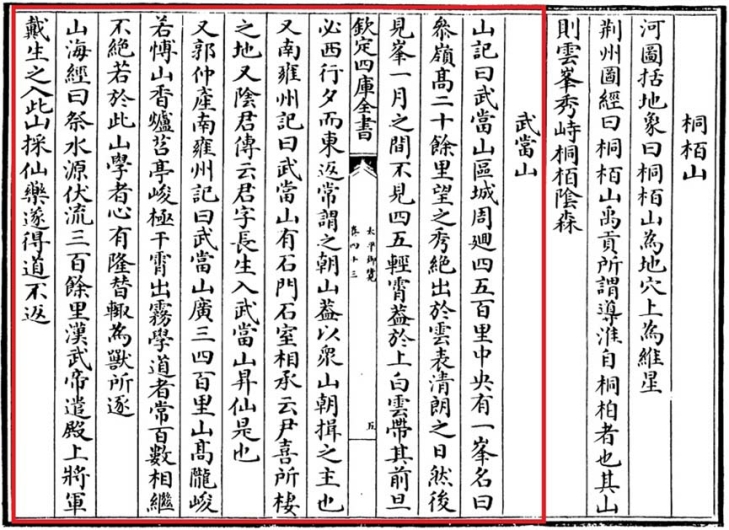 桐栢山
河圖括地象曰桐栢山為地穴上為維星
荆州圖經曰桐栢山禹貢所謂導淮自桐柏者也其山
則雲峯秀峙桐栢陰森
武當山
山記曰武當山區域周廻四五百里中央有一峯名曰
叅嶺髙二十餘里望之秀絶出於雲表清朗之日然後
見峯一月之間不見四五輕霄葢於上白雲帶其前旦
欽定四庫全書
太平御覧
卷四十三
五
必西行夕而東返常謂之朝山葢以衆山朝揖之主也
又南雍州記曰武當山有石門石室相承云尹喜所棲
之地又陰君傳云君字長生入武當山昇仙是也
又郭仲產南雍州記曰武當山廣三四百里山髙隴峻
若博山香爐苕亭峻極干霄出霧學道者常百數相繼
不絶若於此山學者心有隆替輒為獸所逐
山海經曰祭水源伏流三百餘里漢武帝遣殿上將軍
戴生之入此山採仙藥遂得道不返